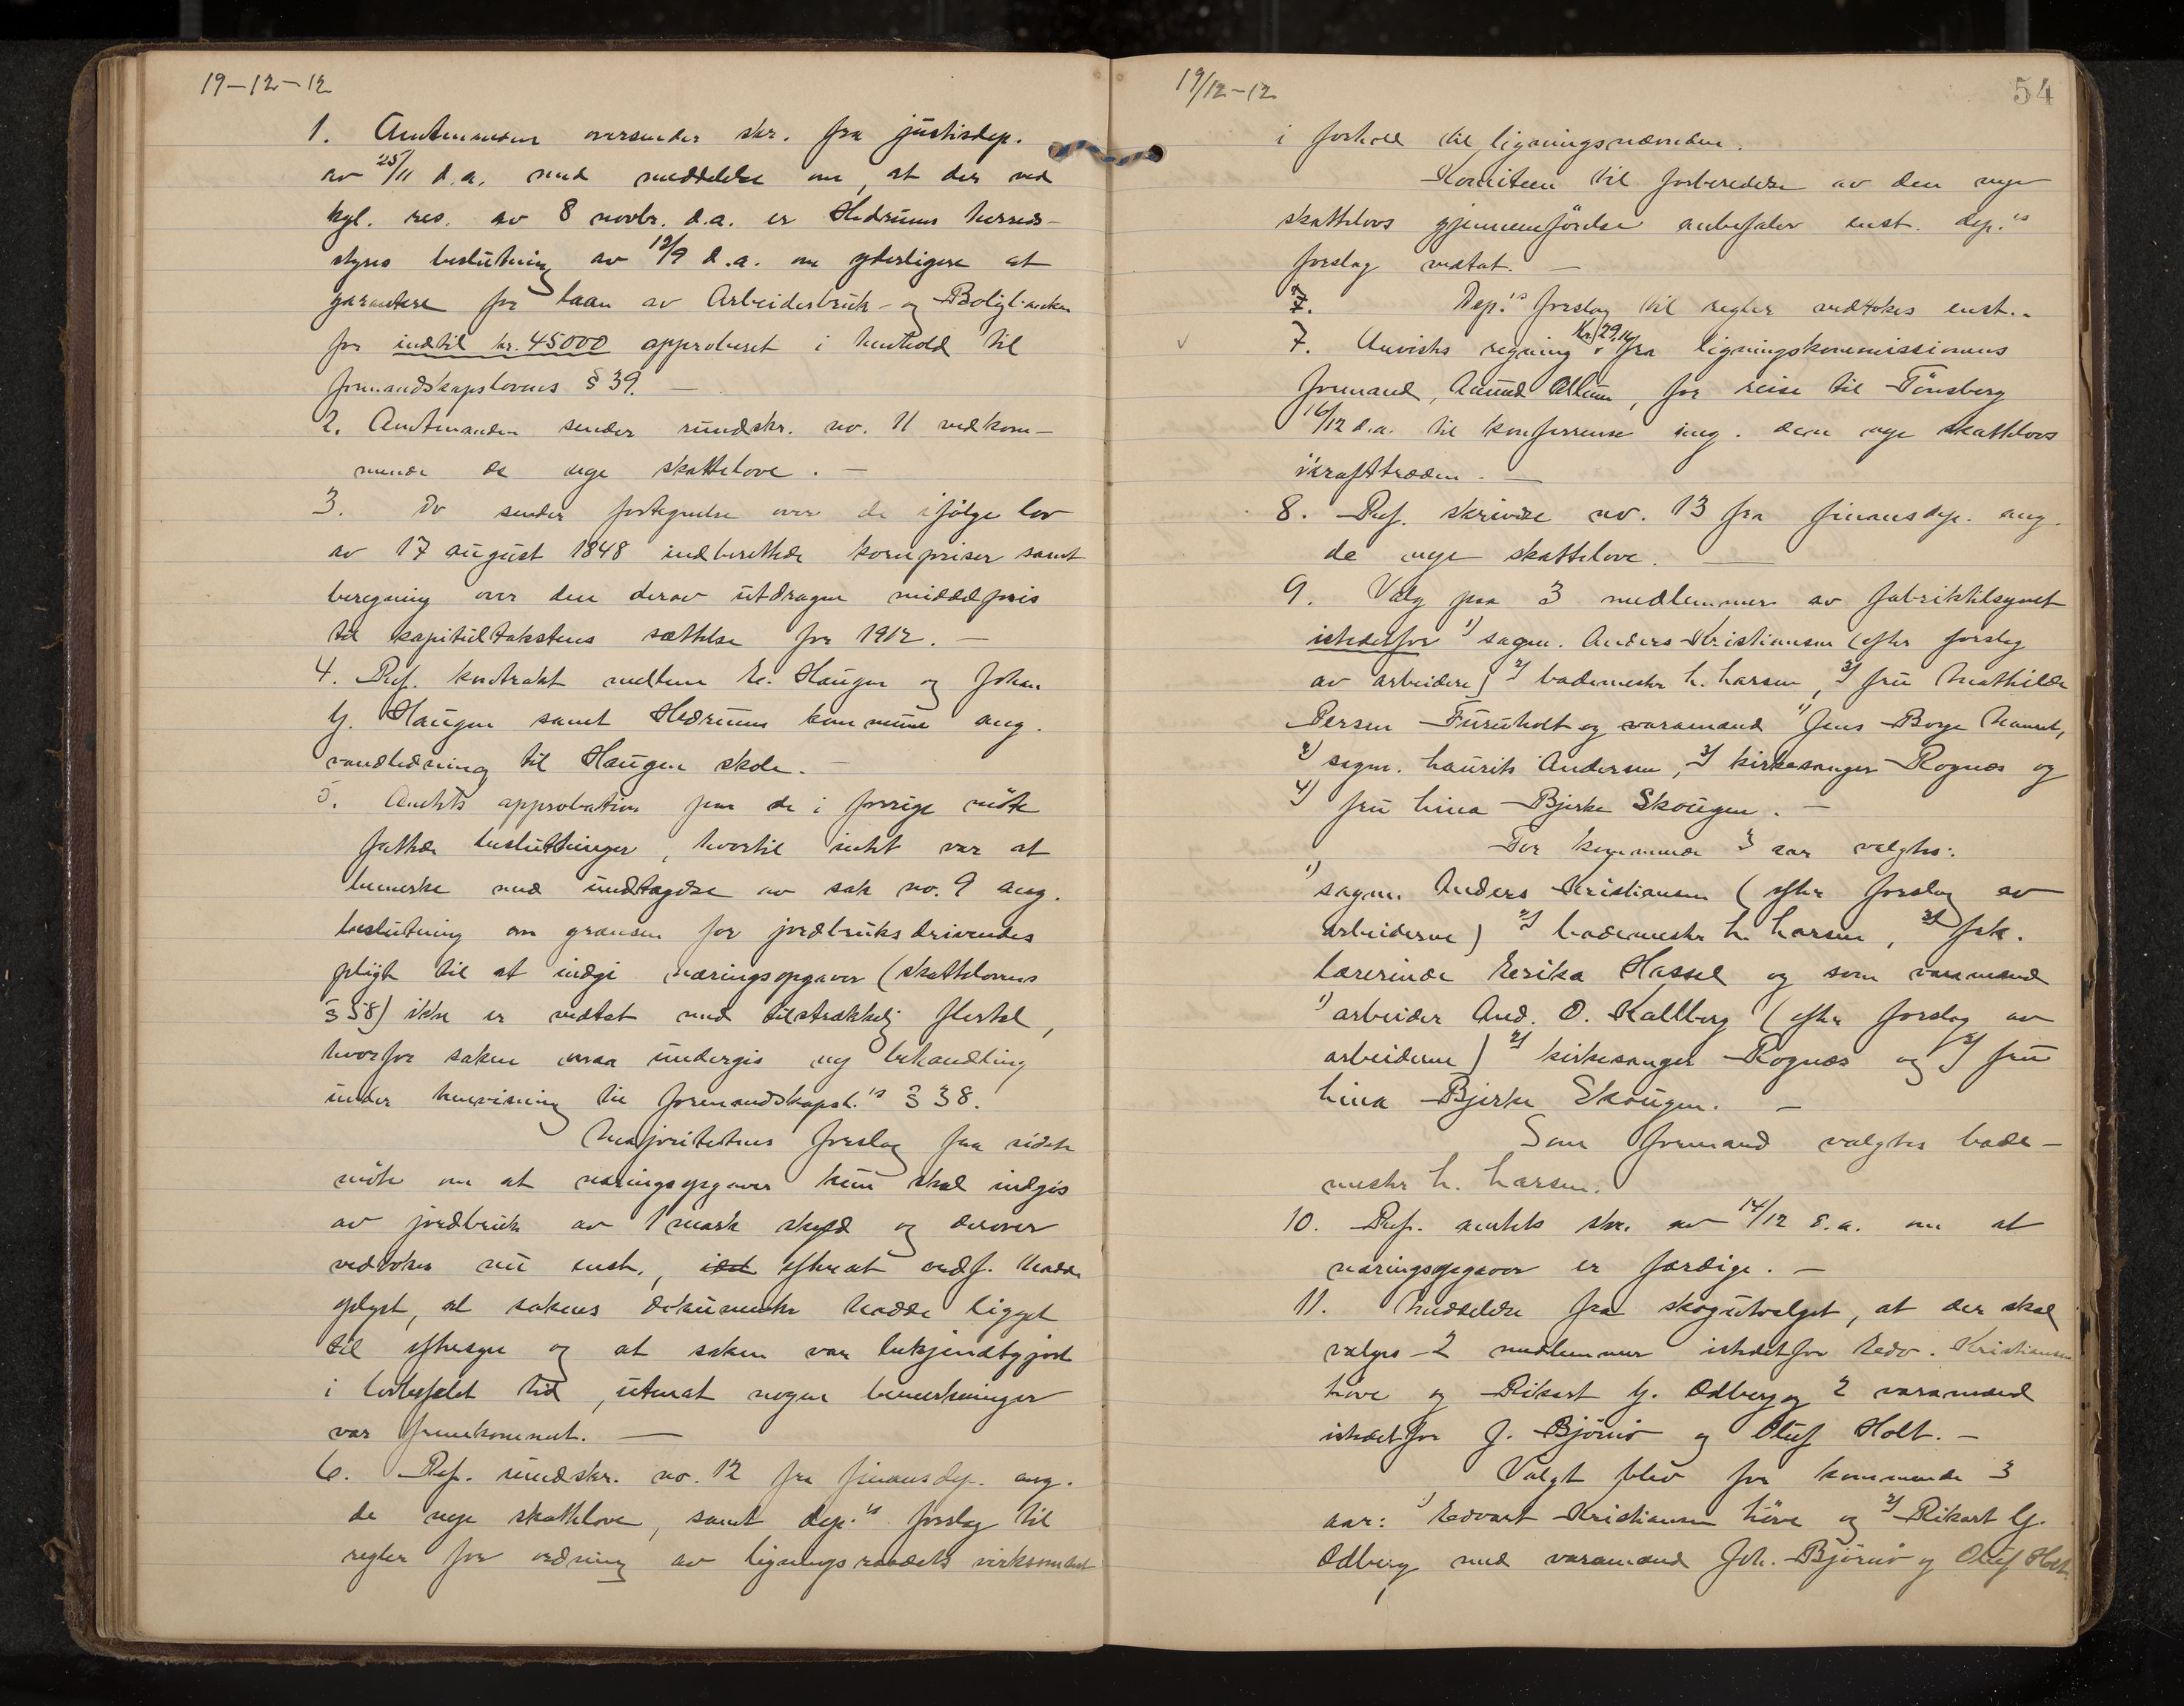 19-12-12
1. Amtmanden oversender skr. fra justisdep.
av 25/11 d.a. med meddelelse om, at der ved
kgl. res. av 8 novbr. d.a. er Hedrums herreds-
styres beslutning av 12/9 d.a. om yderligere at
garantere for laan av Arbeiderbruk- og Boligbanken
for indtil kr. 45000 approberet i henhold til
formandskapslovens § 39. —
2. Amtmanden sender rundskr. no. 11 vedkom-
mende de nye skattelove. —
3. Do sender fortegnelse over de ifölge lov
av 17 august 1848 indberettede kornpriser samt
beregning over den derav utdragne middelpris
til kapitultakstens sættelse for 1912. —
4. Ref. kontrakt mellem E. Haugen og Johan
G. Haugen samt Hedrums kommune ang.
vandledning til Haugen skole. —
5. Amtets approbation paa de i forrige möte
fattede beslutninger, hvortil intet var at
bemerke med undtagelse av sak no. 9 ang.
beslutning om grænsen for jordbruksdrivendes
pligt til at indgi næringsopgaver (skattelovens
§ 58) ikke er vedtat med tilstrækkelig flertal,
hvorfor saken maa undergis ny behandling
under henvisning til formandskapsl.'s § 38.
Majoritetens forslag fra sidste
möte om at næringsopgaver kun skal indgis
av jordbruk av 1 mark skyld og derover
vedtokes nu enst., efterat ordf. hadde
oplyst, at sakens dokumenter hadde ligget
til eftersyn og at saken var bekjendtgjort
i lovbefalet tid, utenat nogen bemerkninger
var fremkommet. —
6. Ref. rundskr. no. 12 fra finansdep. ang.
de nye skattelove, samt dep.'s forslag til
regler for ordning av ligningsraadets virksomhet
19/12-12
54
i forhold til ligningsnævnden.
Komiteen til forberedelse av den nye
skattelovs gjennemförelse anbefaler enst. dep.'s
forslag vedtat. —
7. Dep.'s forslag til regler vedtokes enst. -
7. Anvistes regning kr. 29,16 fra ligningskommissionens
formand, Amund Allum, for reise til Tönsberg
16/12 d.a. til konferense ang. den nye skattelovs
ikrafttræden. —
8. Ref. skrivelse no. 13 fra finansdep. ang.
de nye skattelove. —
9. Valg paa 3 medlemmer av fabriktilsynet
istedetfor 1) sagm. Anders Kristiansen (efter forslag
av arbeidere) 2) bademester h. Larsen, 3) fru Mathilde
Persen Furuholt og varamænd 1) Jens Borge
2) sagm. Laurits Andersen, 3) kirkesanger Rognæs og
4) fru Lina Bjerke Skougen. —
For kommende 3 aar valgtes:
1) sagm. Anders Kristiansen (efter forslag av
arbeiderne) 2) bademester h. Larsen, 3) frk.
lærerinde Erika Hassel og som varamænd
1) arbeider And. O. Kallberg (efter forslag av
arbeiderne) 2) kirkesanger Rognæs og 3) fru
Lina Bjerke Skougen. —
Som formand valgtes bade-
mester h. Larsen.
10. Ref. amtets skr. av 14/12 d.a. om at
næringsopgaver er færdige. —
11. Meddelelse fra skogutvalget, at der skal
vælges 2 medlemmer istedetfor Edv. Kristiansen
Löve og Rikart G. Odberg og 2 varamænd
istedetfor J. Björnö og Oluf Holt. —
Valgt blev for kommende 3
aar: 1) Edvart Kristiansen Löve og 2) Rikart G.
Odberg med varamænd Joh. Björnö og Oluf Holt.